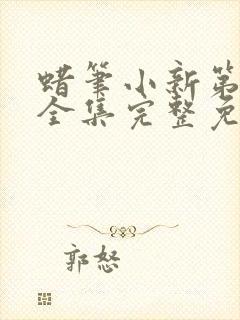 蜡笔小新第
全集完整免
郭怒